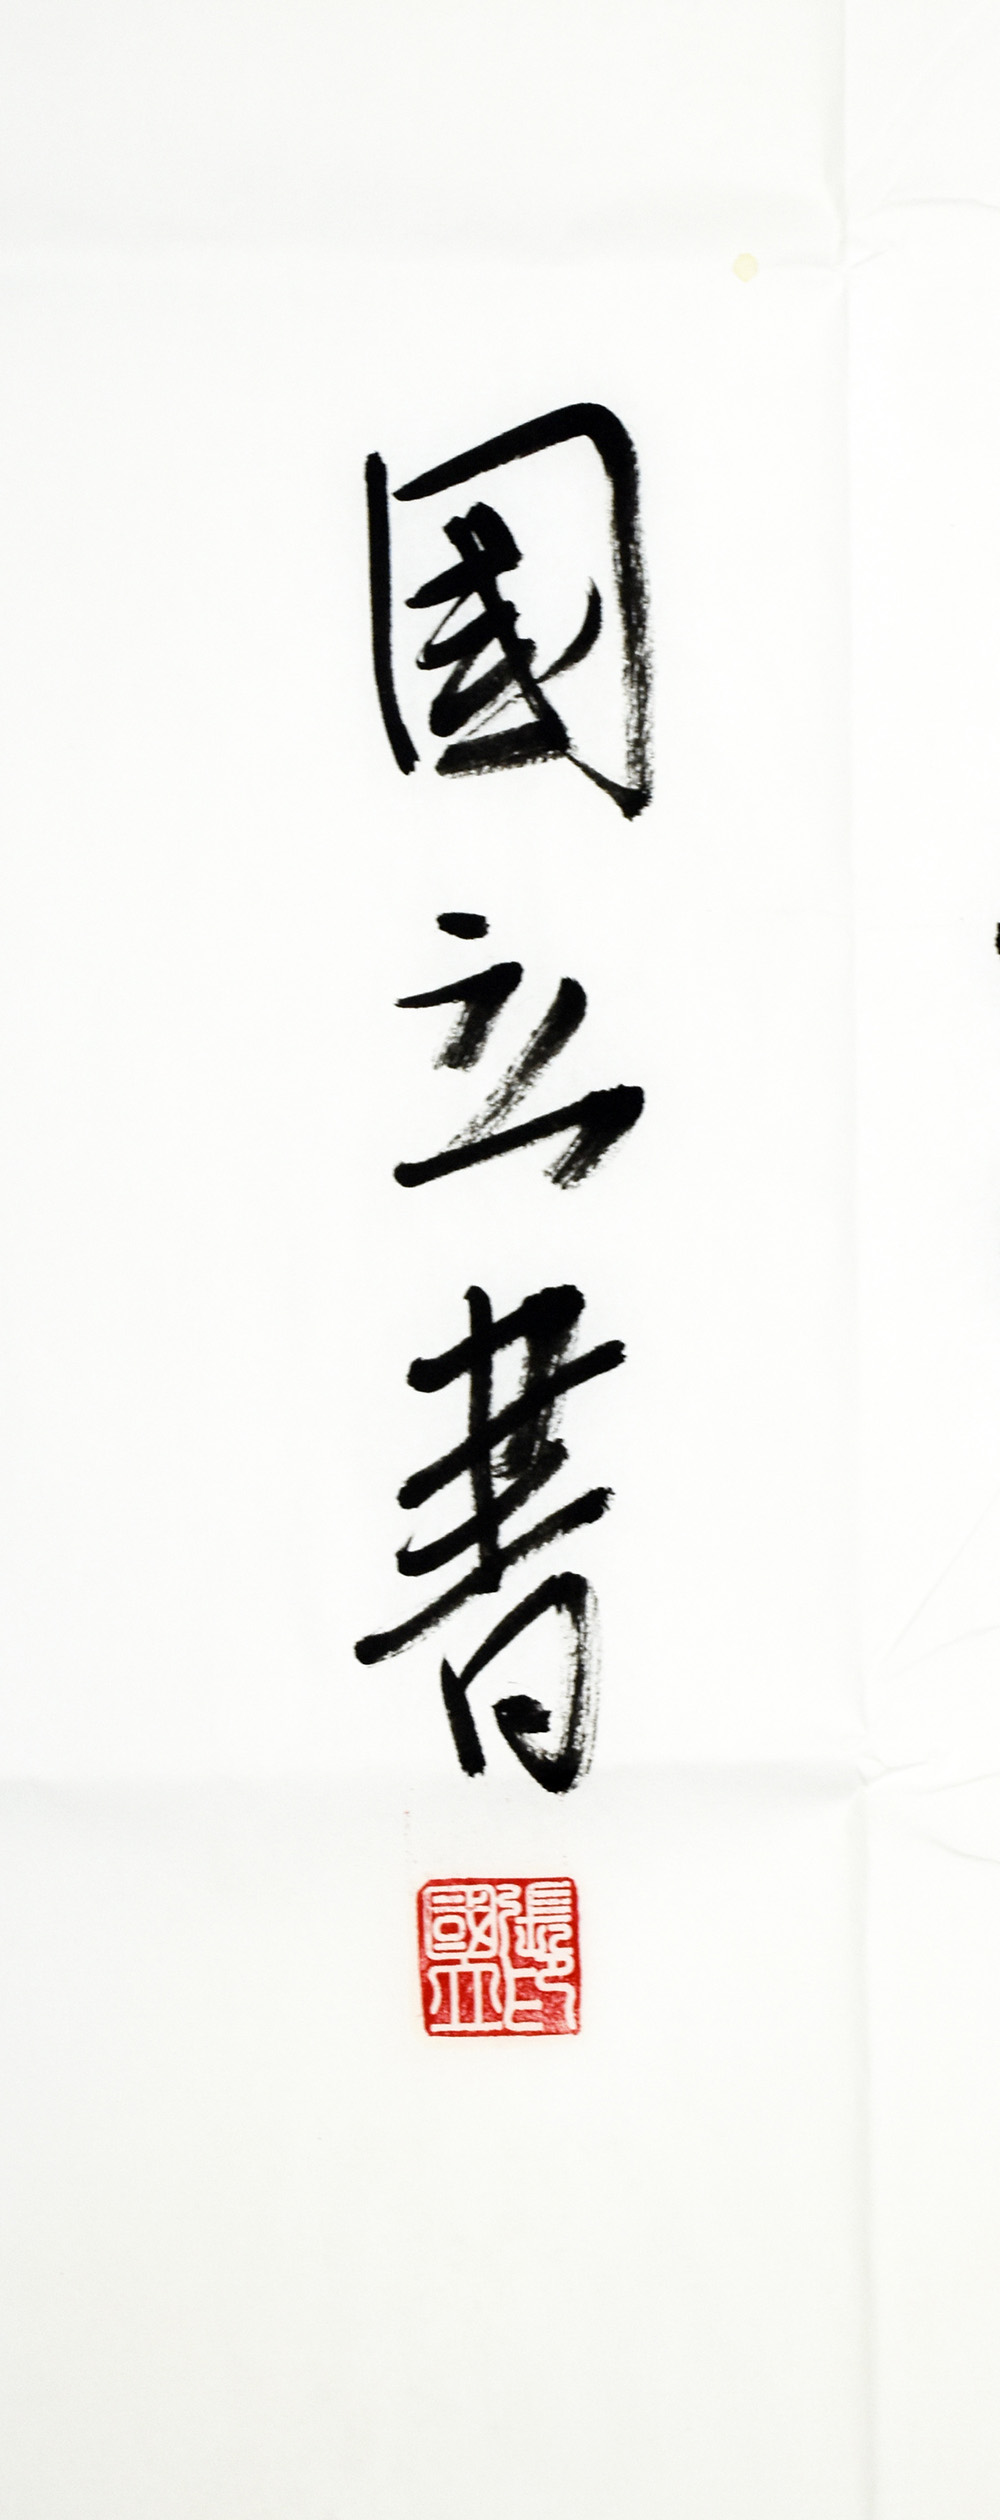 國立書
張印
國立